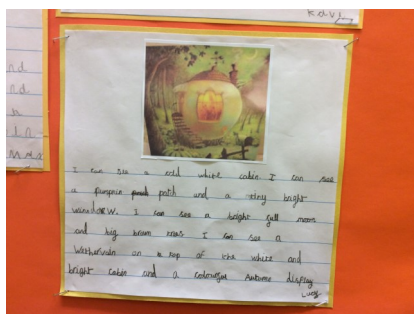 Kavi
nd
nd
I can see a cold white cabin I can see
a pumpin path and a tiny bright
window. I can see a bright full moon
and big brown trees I can see a
Wethervain on top of the white and
bright cabin and a colourful Autumn display
Lucy